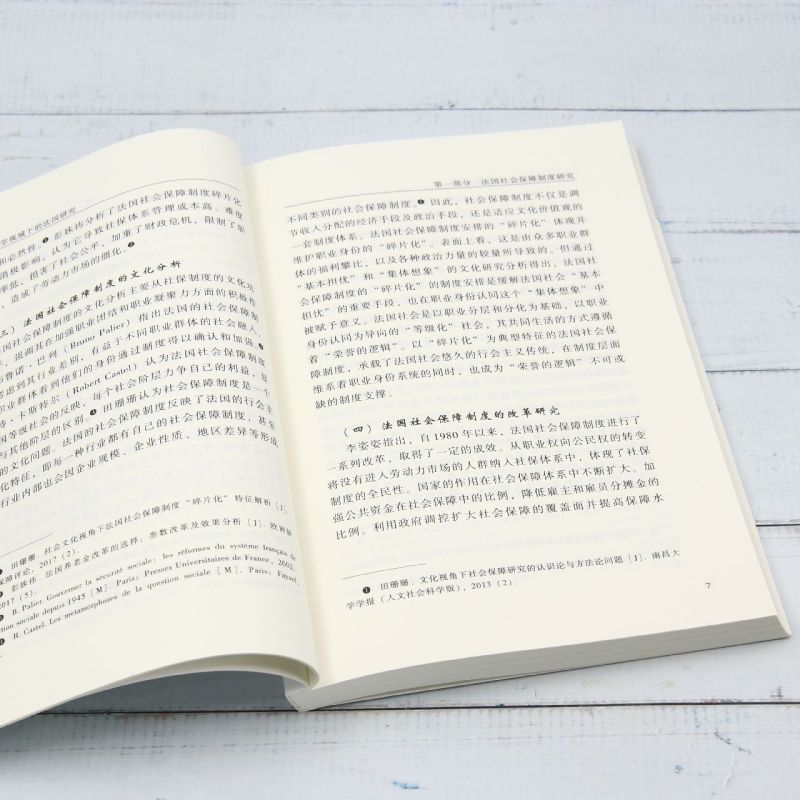 学视域下的法国研究
和必然性。❶彭姝祎分析了法国社会保障制度碎片化
消极影响，认为它导致社保体系管理成本高、难度
率低，损害了社会公平，加重了财政危机，限制了职
，造成了劳动力市场的僵化。❷
三）法国社会保障制度的文化分析
法国社会保障制度的文化分析主要从社保制度的文化功
，强调其在加强职业团结和职业凝聚力方面的积极作
布鲁诺·巴列（Bruno Palier）指出法国的社会保障制
考虑到其行业差别，有益于不同职业群体的社会融入，
职业群体系到他们的身份通过制度得以确认和加强。❸
特·卡斯特尔（Robert Castel）认为法国社会保障制度是一个
国等级社会的反映，每个社会阶层力争自己的利益，显
与其他阶层的区别。❹田珊珊认为社会保障制度甚至
的文化问题。法国的社会保障制度反映了法国的行会主
化特征，即每一种行业都有自己的社会保障制度，
行业内部也会因企业规模、企业性质、地区差异等形成
田珊珊．社会文化视角下法国社会保障制度“碎片化”特征解析［J］．
保障评论，2017（2）．
❷ 彭姝祎．法国养老金改革的选择：参数改革及效果分析［J］．欧洲研
2017（5）．
❸ B. Palier. Gouverner la sécurité sociale: les réformes du système français de
tion sociale depuis 1945［M］. Paris: Presses Universitaires de France, 2002.
❹ R. Castel. Les metamorphoses de la question sociale［M］. Paris: Fayard,
第一部分　法国社会保障制度研究
不同类别的社会保障制度。❶因此，社会保障制度不仅是调
节收入分配的经济手段及政治手段，还是适应文化价值观的
一套制度体系。法国社会保障制度安排的“碎片化”体现并
维护职业身份的“碎片化”。表面上看，这是由众多职业群
体的福利攀比，以及各种政治力量的较量所导致的。但通过
“基本担忧”和“集体想象”的文化研究分析得出，法国社
会保障制度的“碎片化”的制度安排是缓解法国社会“基本
担忧”的重要手段，也在职业身份认同这个“集体想象”中
被赋予意义。法国社会是以职业分层和分化为基础，以职业
身份认同为导向的“等级化”社会，其共同生活的方式遵循
着“荣誉的逻辑”。以“碎片化”为典型特征的法国社会保
障制度，承载了法国社会悠久的行会主义传统，在制度层面
维系着职业身份系统的同时，也成为“荣誉的逻辑”不可或
缺的制度支撑。
（四）法国社会保障制度的改革研究
李姿姿指出，自1980年以来，法国社会保障制度进行了
一系列改革，取得了一定的成效。从职业权向公民权的转变
将没有进入劳动力市场的人群纳入社保体系中，体现了社保
制度的全民性。国家的作用在社会保障体系中不断扩大。加
强公共资金在社会保障中的比例，降低雇主和雇员分摊金的
比例。利用政府调控扩大社会保障的覆盖面并提高保障水
❶ 田珊珊．文化视角下社会保障研究的认识论与方法论问题［J］．南昌大
学学报（人文社会科学版），2013（2）．
7